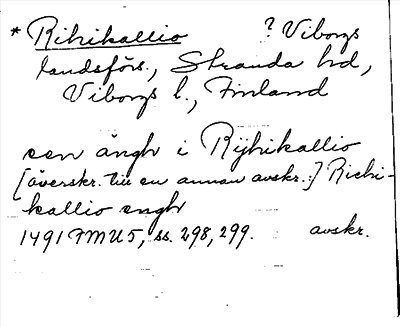 * Rihikallio ? Viborgs
landsförs., Stranda hd,
Viborgs l., Finland
een ängh i Rijhikallio
[överskr. till en annan avskr.:] Richi-
kallio engh
1491 FMU 5, ss. 298, 299. avskr.